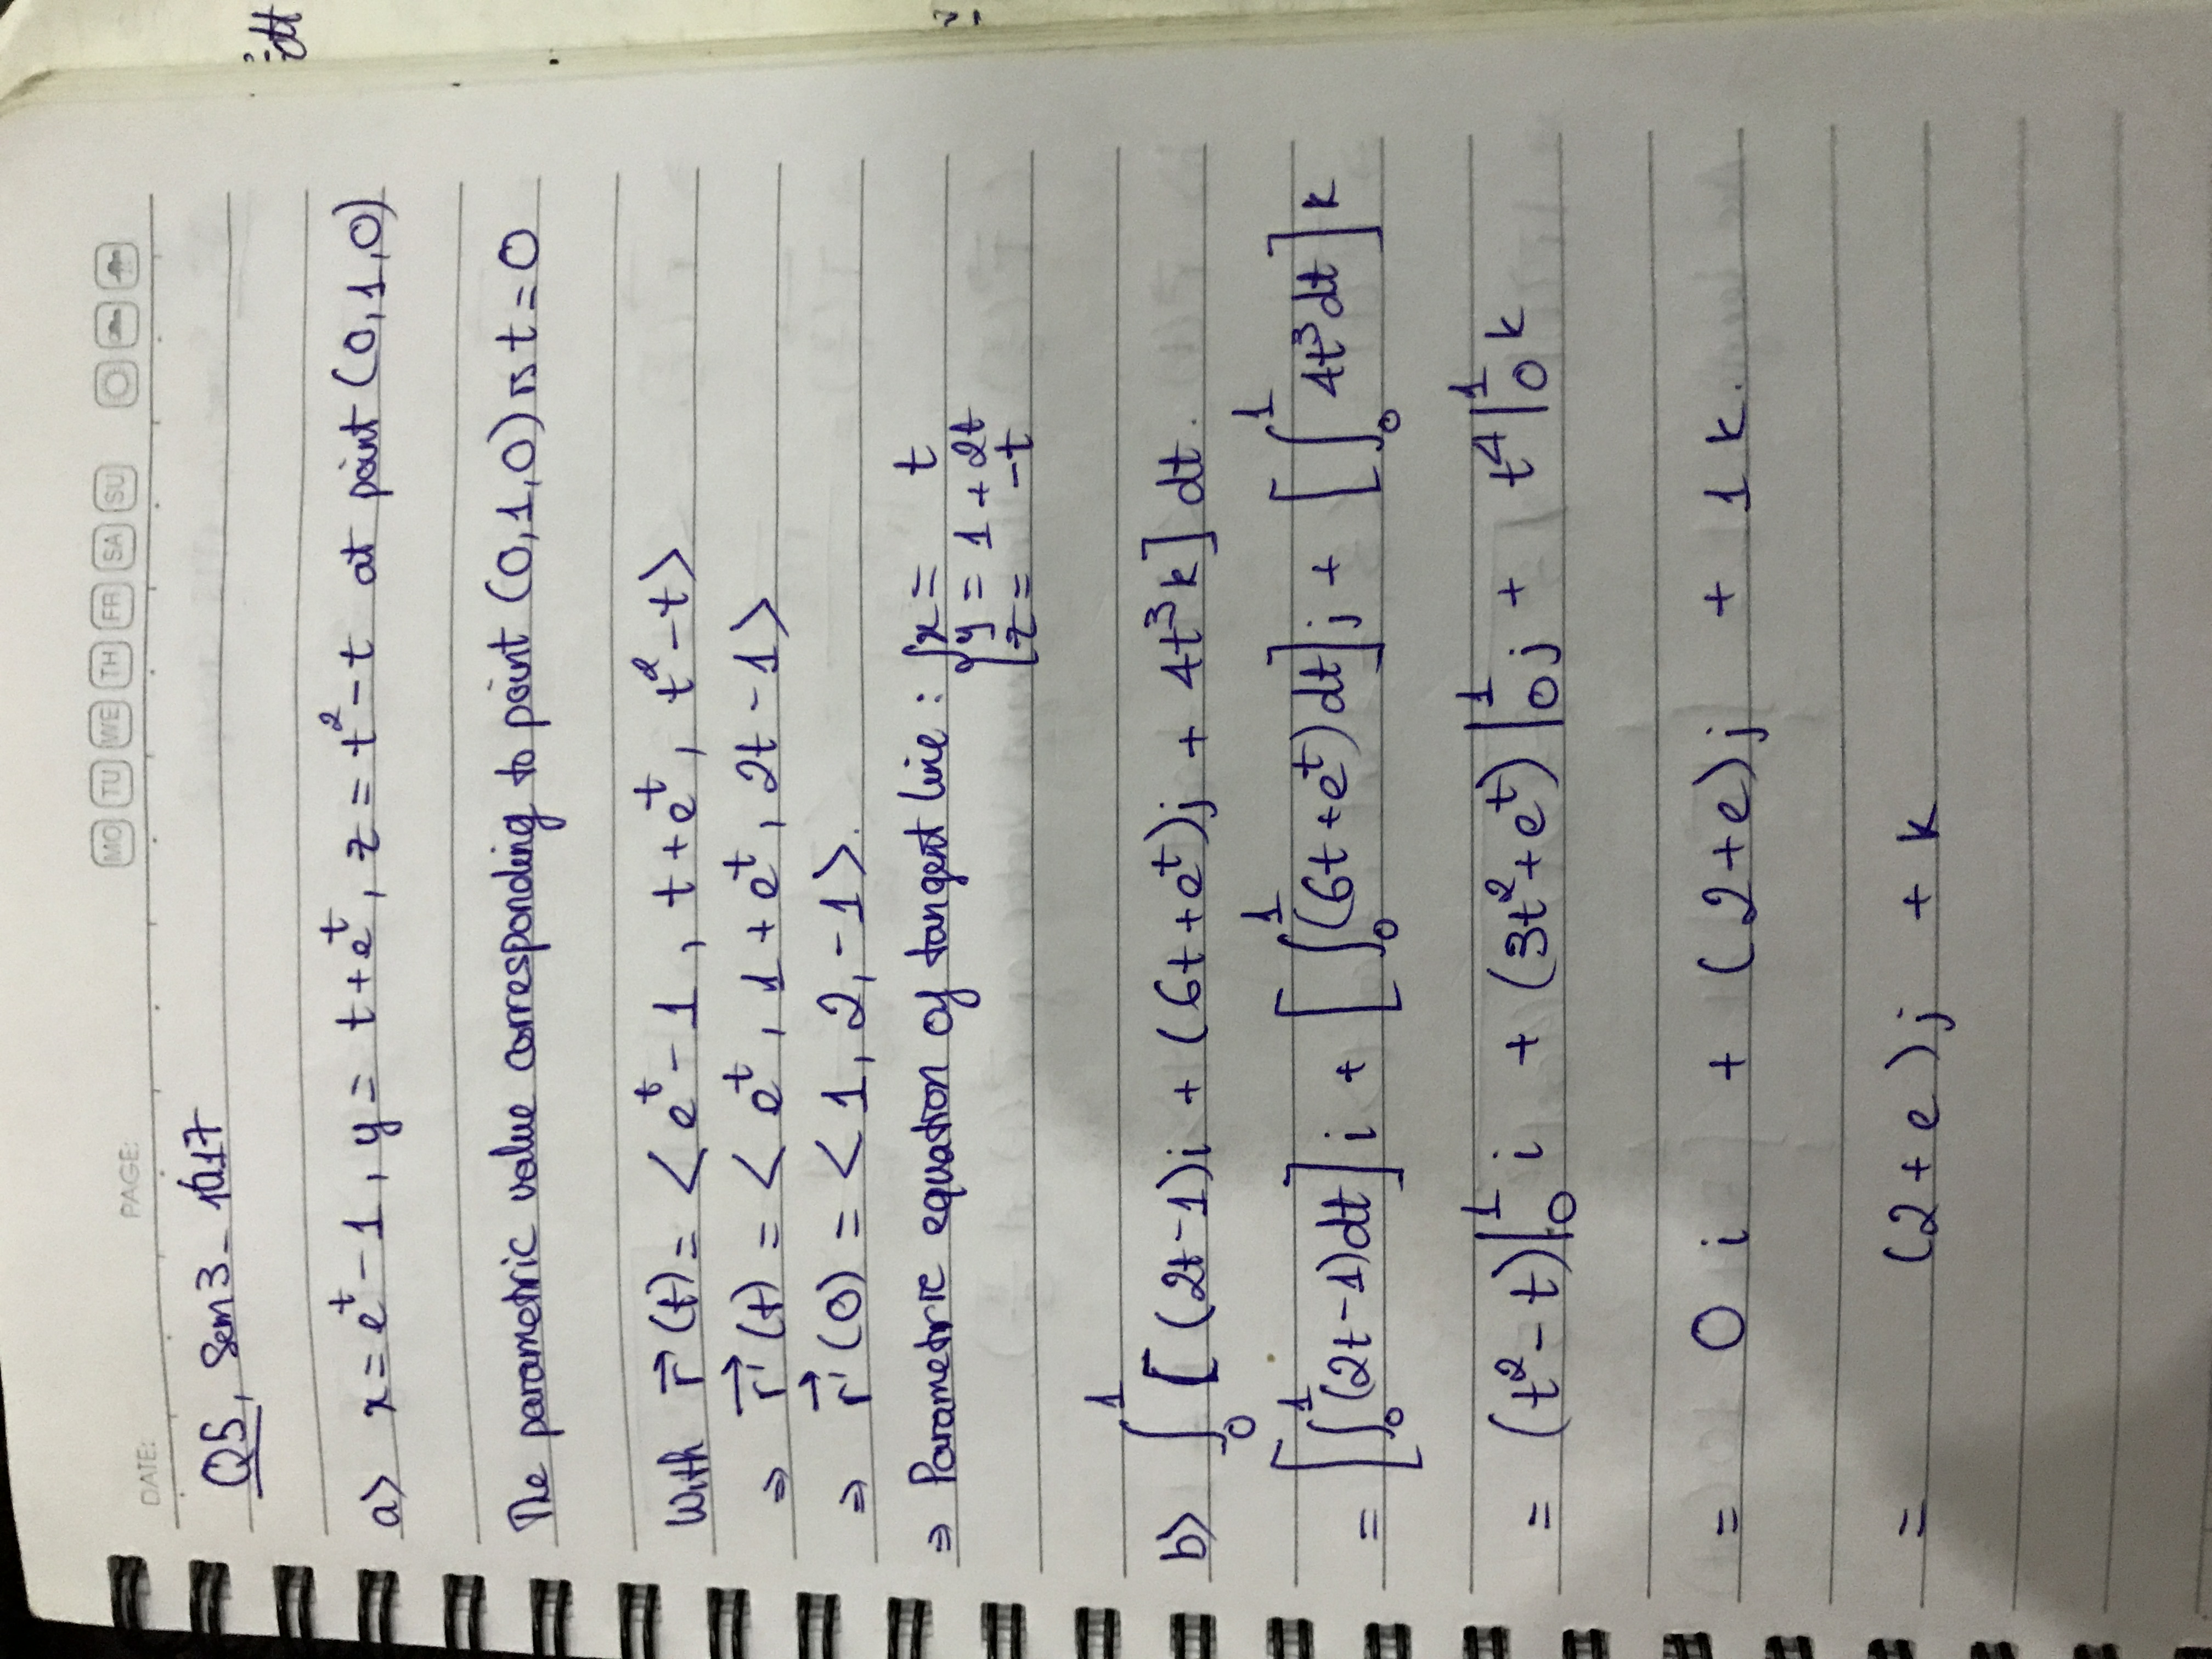 DATE: PAGE: MO TU WE TH FR SA SU
Q5, Sem 3 - 1617
a> x = e^t - 1, y = t + e^t, z = t^2 - t at point (0,1,0)
dt
The parametric value corresponding to point (0,1,0) is t = 0
With r⃗(t) = < e^t - 1, t + e^t, t^2 - t >
⇒ r⃗'(t) = < e^t, 1 + e^t, 2t - 1 >
⇒ r⃗'(0) = < 1, 2, -1 >.
⇒ Parametric equation of tangent line : { x = t
y = 1 + 2t
z = -t
b> ∫_0^1 [ (2t-1)i + (6t + e^t)j + 4t^3 k ] dt.
= [ ∫_0^1 (2t-1)dt ] i + [ ∫_0^1 (6t + e^t) dt ] j + [ ∫_0^1 4t^3 dt ] k
= (t^2 - t)|_0^1 i + (3t^2 + e^t)|_0^1 j + t^4|_0^1 k
= 0 i + (2+e)j + 1 k.
= (2+e)j + k